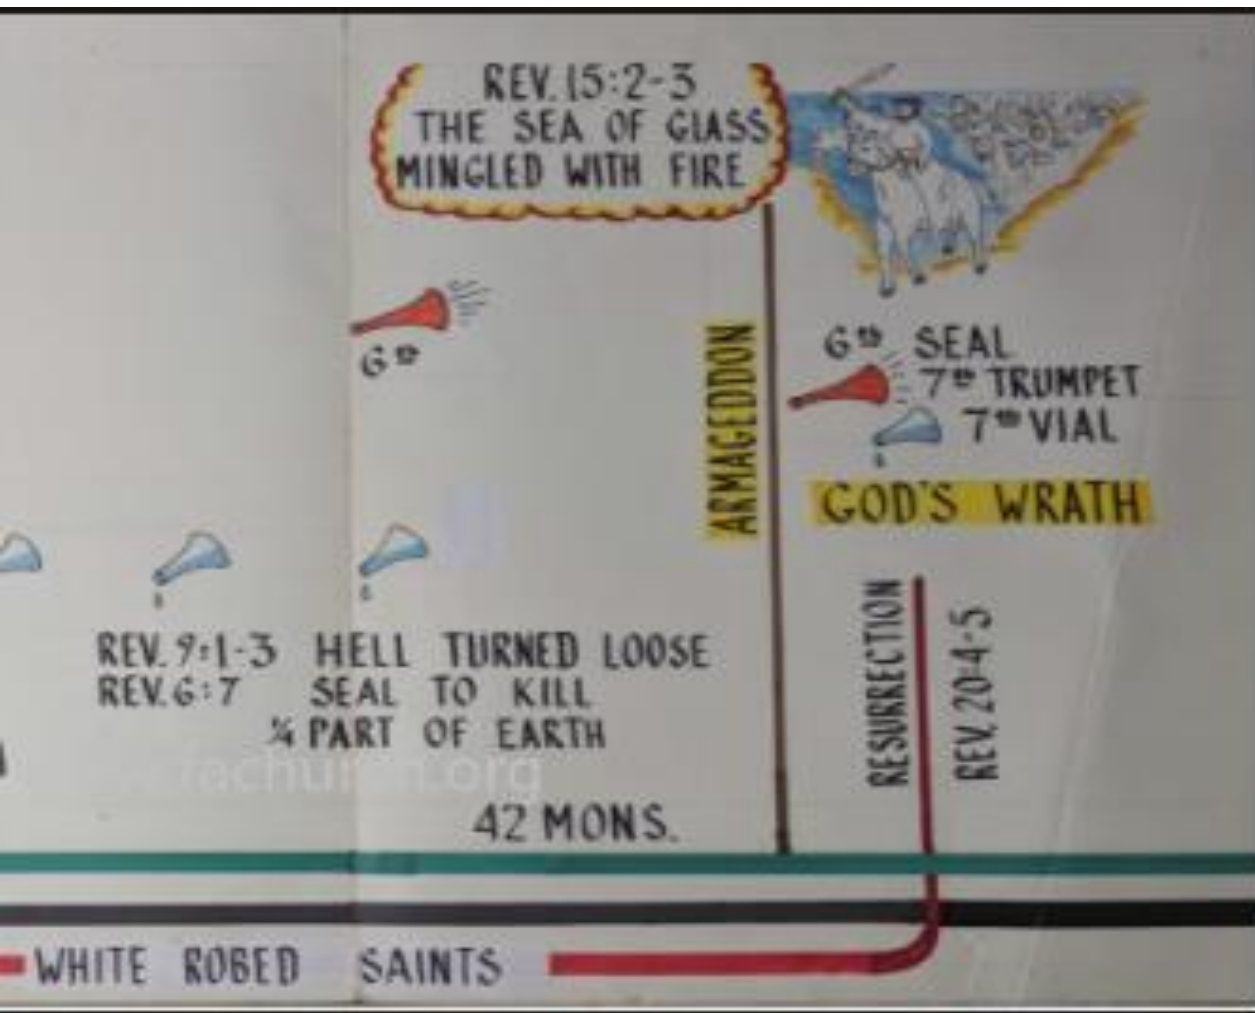 REV. 15:2-3
THE SEA OF GLASS
MINGLED WITH FIRE
6TH
ARMAGEDDON
6TH SEAL
7TH TRUMPET
7TH VIAL
GOD'S WRATH
REV. 9:1-3 HELL TURNED LOOSE
REV. 6:7 SEAL TO KILL
¼ PART OF EARTH
42 MONS.
RESURRECTION
REV. 20:4-5
WHITE ROBED SAINTS